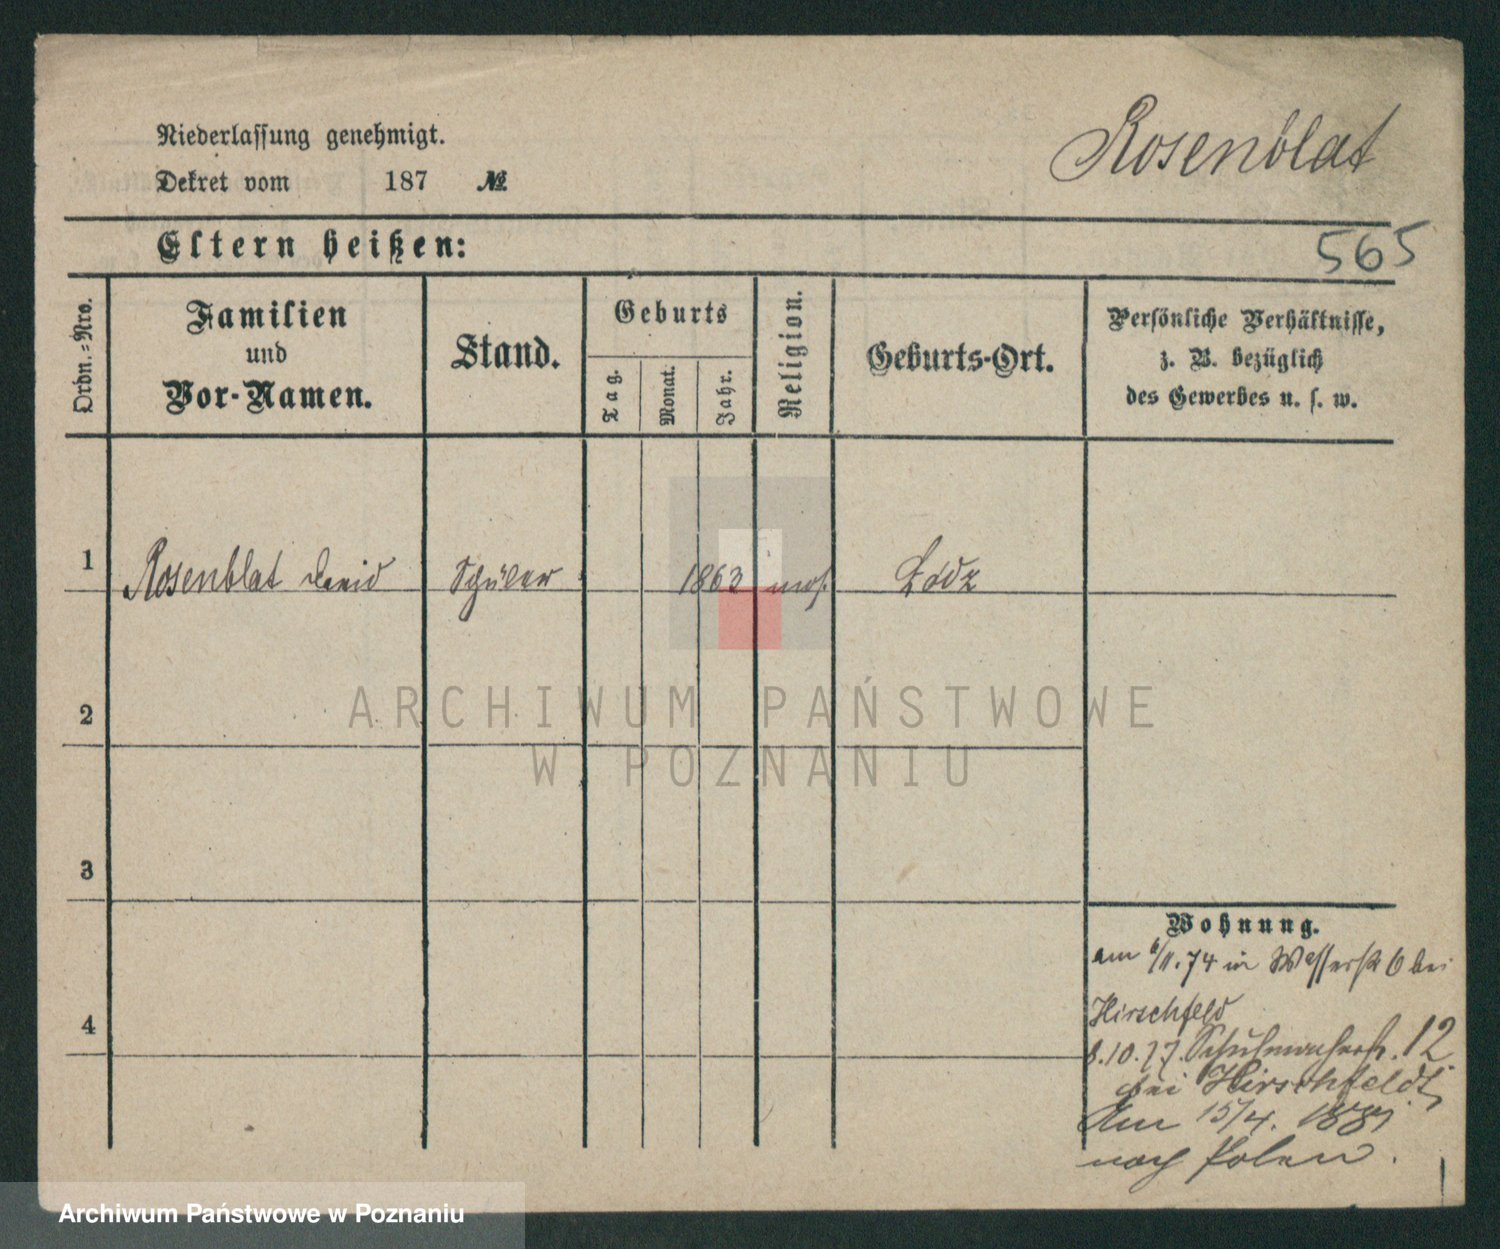 Niederlassung genehmigt.
Rosenblat
Dekret vom 187 №
Eltern heißen:
565
Ordn.=Nro.
Familien
und
Vor-Namen.
Stand.
Geburts
Tag.
Monat.
Jahr.
Religion.
Geburts-Ort.
Persönliche Verhältnisse,
z. B. bezüglich
des Gewerbes u. s. w.
1 Rosenblat David Schüler 1863 mos. Łódz
2
ARCHIWUM PAŃSTWOWE
W POZNANIU
3
Wohnung.
am 6/11.74 in Wasserstr 6 bei
Hirschfeld
4
8.10.77. Schuhmacherstr. 12
bei Hirschfeldt,
Am 15/4. 1881
nach Polen.
Archiwum Państwowe w Poznaniu